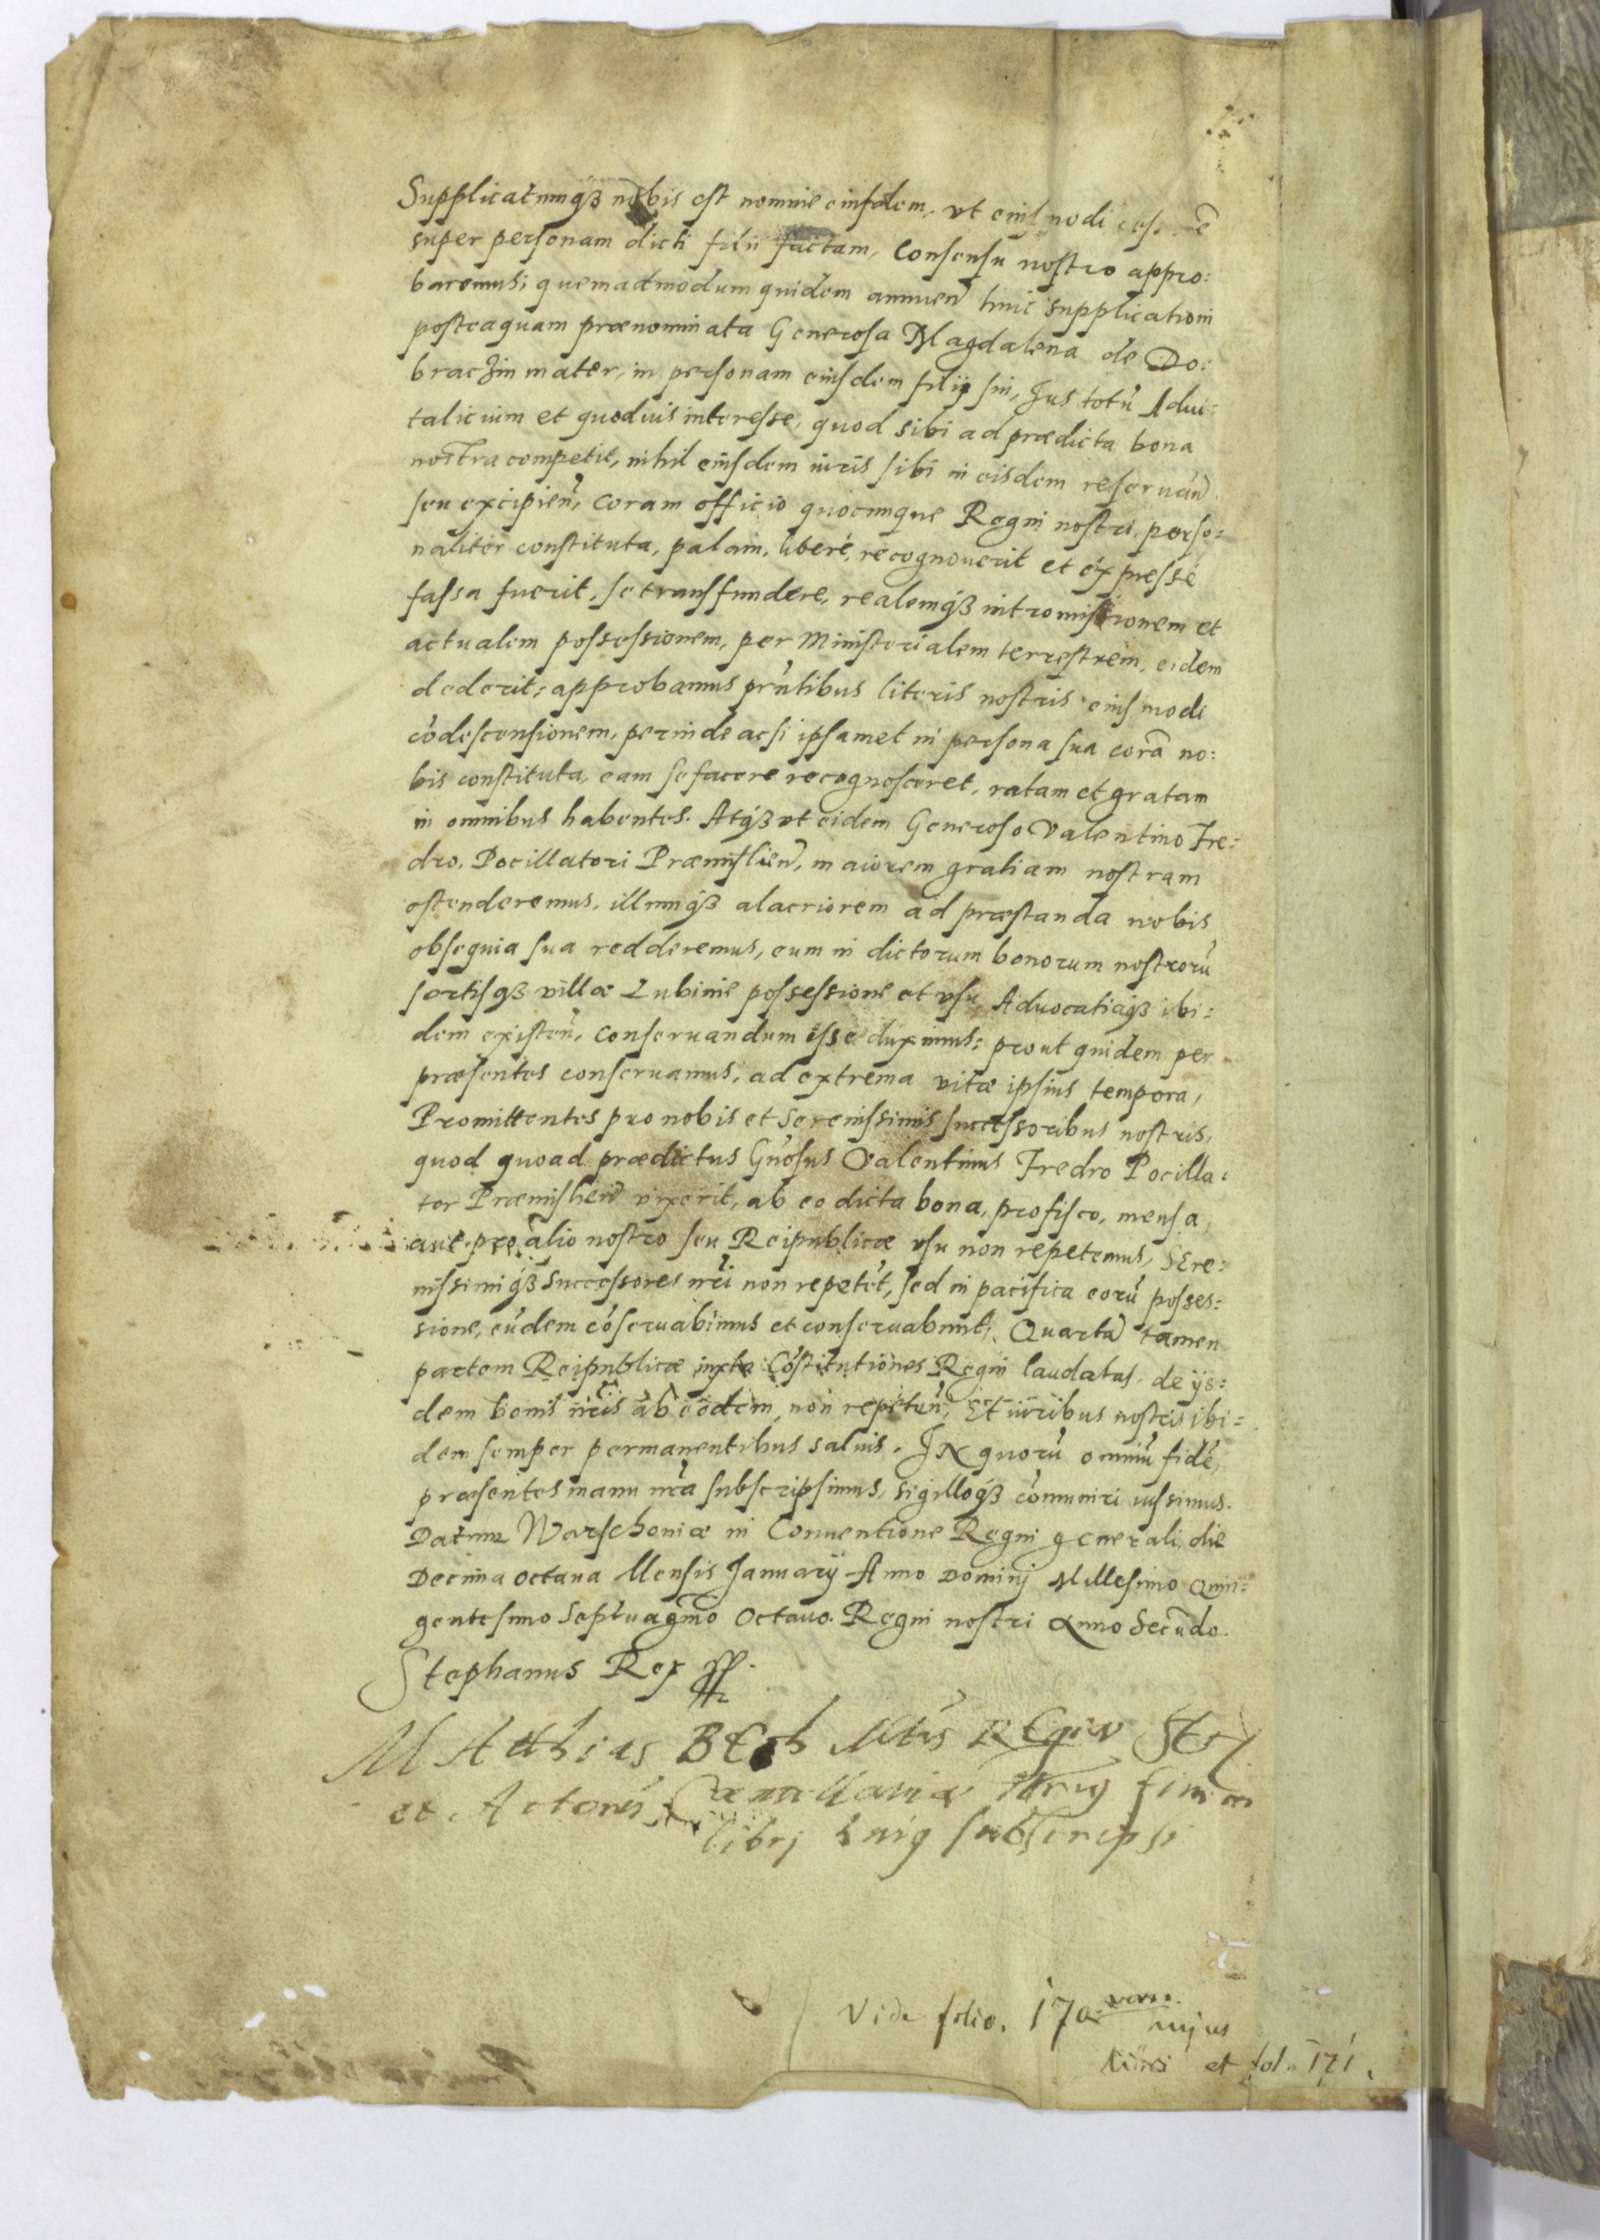 Supplicatumqȝ nobis est nomine eiusdem, vt eiusmodi
super personam dicti filii factam, Consensu nostro appro:
baremus; quemadmodum quidem annuen̄ huic supplicationi
posteaquam prænominata Generosa Magdalena de Do:
braczin mater, in personam eiusdem filij sui, Jus totū Advi:
talicium et quoduis interesse, quod sibi ad prædicta bona
nostra competit, nihil eiusdem iuris sibi in eisdem reseruan̄
seu excipien̄, coram officio quocunque Regni nostri, perso:
naliter constituta, palam, liberé, recognouerit et expressé
fassa fuerit, se transfundere, realemqȝ intromissionem et
actualem possessionem, per Ministerialem terrestrem, eidem
dederit; approbamus prn̄tibus literis nostris eiusmodi
cōdescensionem, perinde acsi ipsamet in persona sua corā no:
bis constituta, eam se facere recognosceret, ratam et gratam
in omnibus habentes. Atqȝ vt eidem Generoso Valentino Fre:
dro, Pocillatori Præmislien̄, maiorem gratiam nostram
ostenderemus, illumqȝ alacriorem ad præstanda nobis
obsequia sua redderemus, eum in dictorum bonorum nostrorū
sortisqȝ villæ Lubinie possessione et vsu, Aduocatiæqȝ ibi:
dem existen̄, conseruandum esse duximus: prout quidem per
præsentes conseruamus, ad extrema vitæ ipsius tempora,
Promittentes pro nobis et Serenissimis successoribus nostris,
quod quoad prædictus Gn̄osus Valentinus Fredro Pocilla:
tor Præmislien̄ vixerit, ab eo dicta bona, pro fisco, mensa,
aut pro alio nostro seu Reipublicæ vsu non repetemus, Sere:
nissimiqȝ Successores nr̄i non repetēt, sed in pacifica eorū posses:
sione, eūdem cōseruabimus et conseruabunt; Quartā tamen
partem Reipublicæ iuxta Cōstitutiones Regni laudatas, de ijs:
dem bonis nr̄is ab eodem non repeten̄, Et iuribus nostris ibi:
dem semper permanentibus saluis. IN quorū omniū fidē,
præsentes manu nr̄a subscripsimus, sigilloqȝ cōmuniri iussimus.
Datum Warschouiæ in Conuentione Regni generali, die
Decima octaua Mensis Januarij Anno Dominj Millesimo Quin:
gentesimo Septuagmō Octauo. Regni nostri Anno Secūdo.
Stephanus Rex
Matthias
et Actorū Cancellariæ
libri subscripsi
Vide folio. 170 vers.
libri et fol. 171.